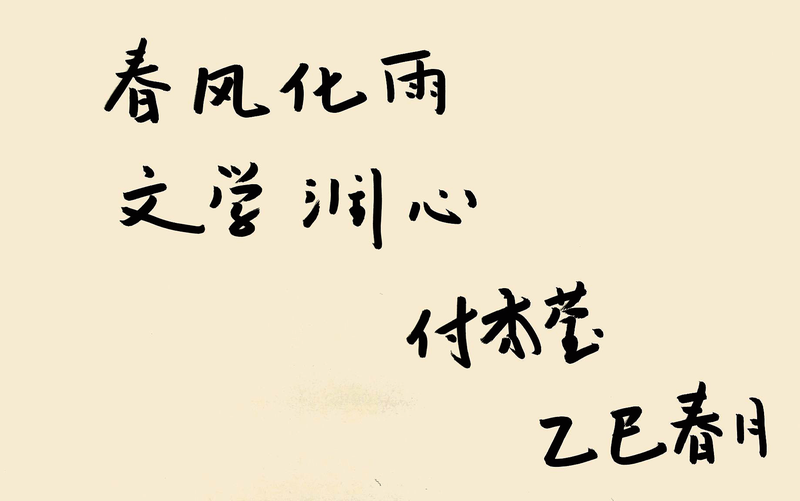 春风化雨
文学润心
付秀莹
乙巳春月